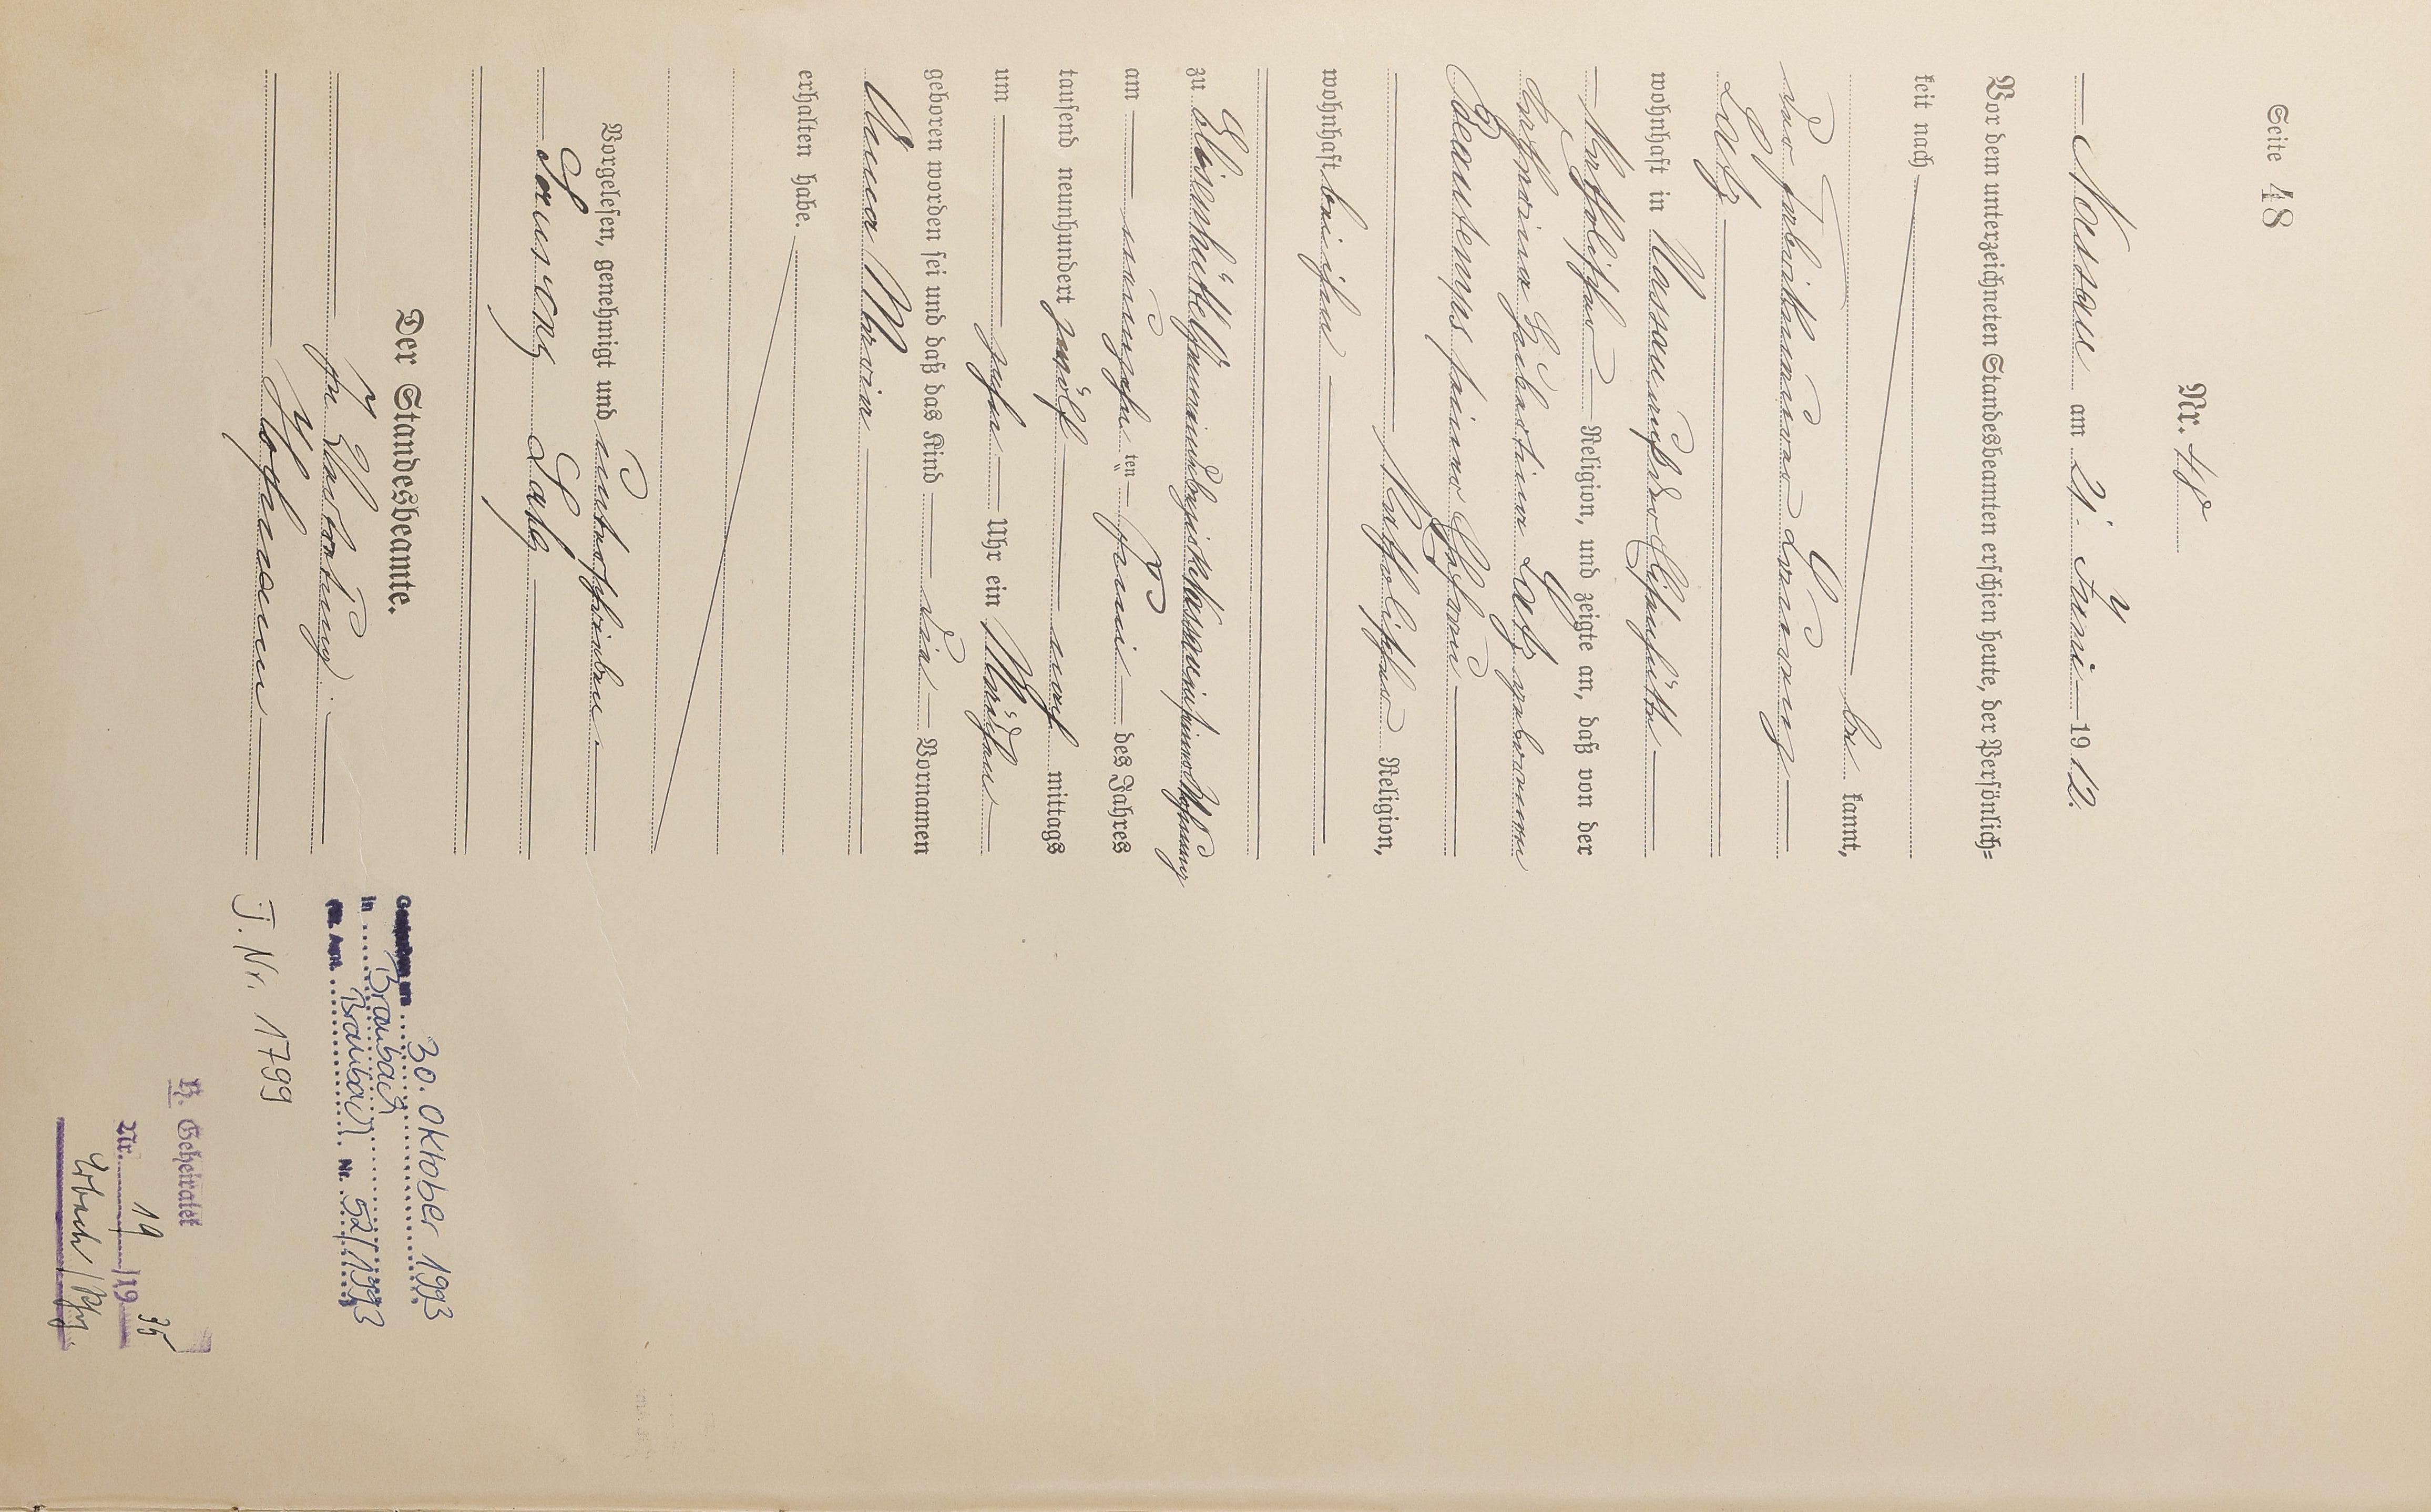 Seite 48
Nr. 48
Nassau am 21. Juni 1912.
Vor dem unterzeichneten Standesbeamten erschien heute, der Persönlich=
keit nach
be kannt,
der Fabrikarbeiter Lorenz
Latz
wohnhaft in Nassau
Katholischer Religion, und zeigte an, daß von der
Katharina Latz geborenen
seiner Ehefrau
Katholischer Religion,
wohnhaft bei ihm
zu Elisenhütte
am neunzehn ten Juni des Jahres
tausend neunhundert zwölf nach mittags
um zehn Uhr ein Mädchen
geboren worden sei und daß das Kind die Vornamen
Anna Maria
erhalten habe.
Vorgelesen, genehmigt und unterschrieben.
Lorenz Latz
Der Standesbeamte.
In Vertretung:
Hofmann
30. Oktober 1993
in Braubach
Braubach Nr. 52/1993
J. Nr. 1799
Geheiratet
Nr. 19 /19 35